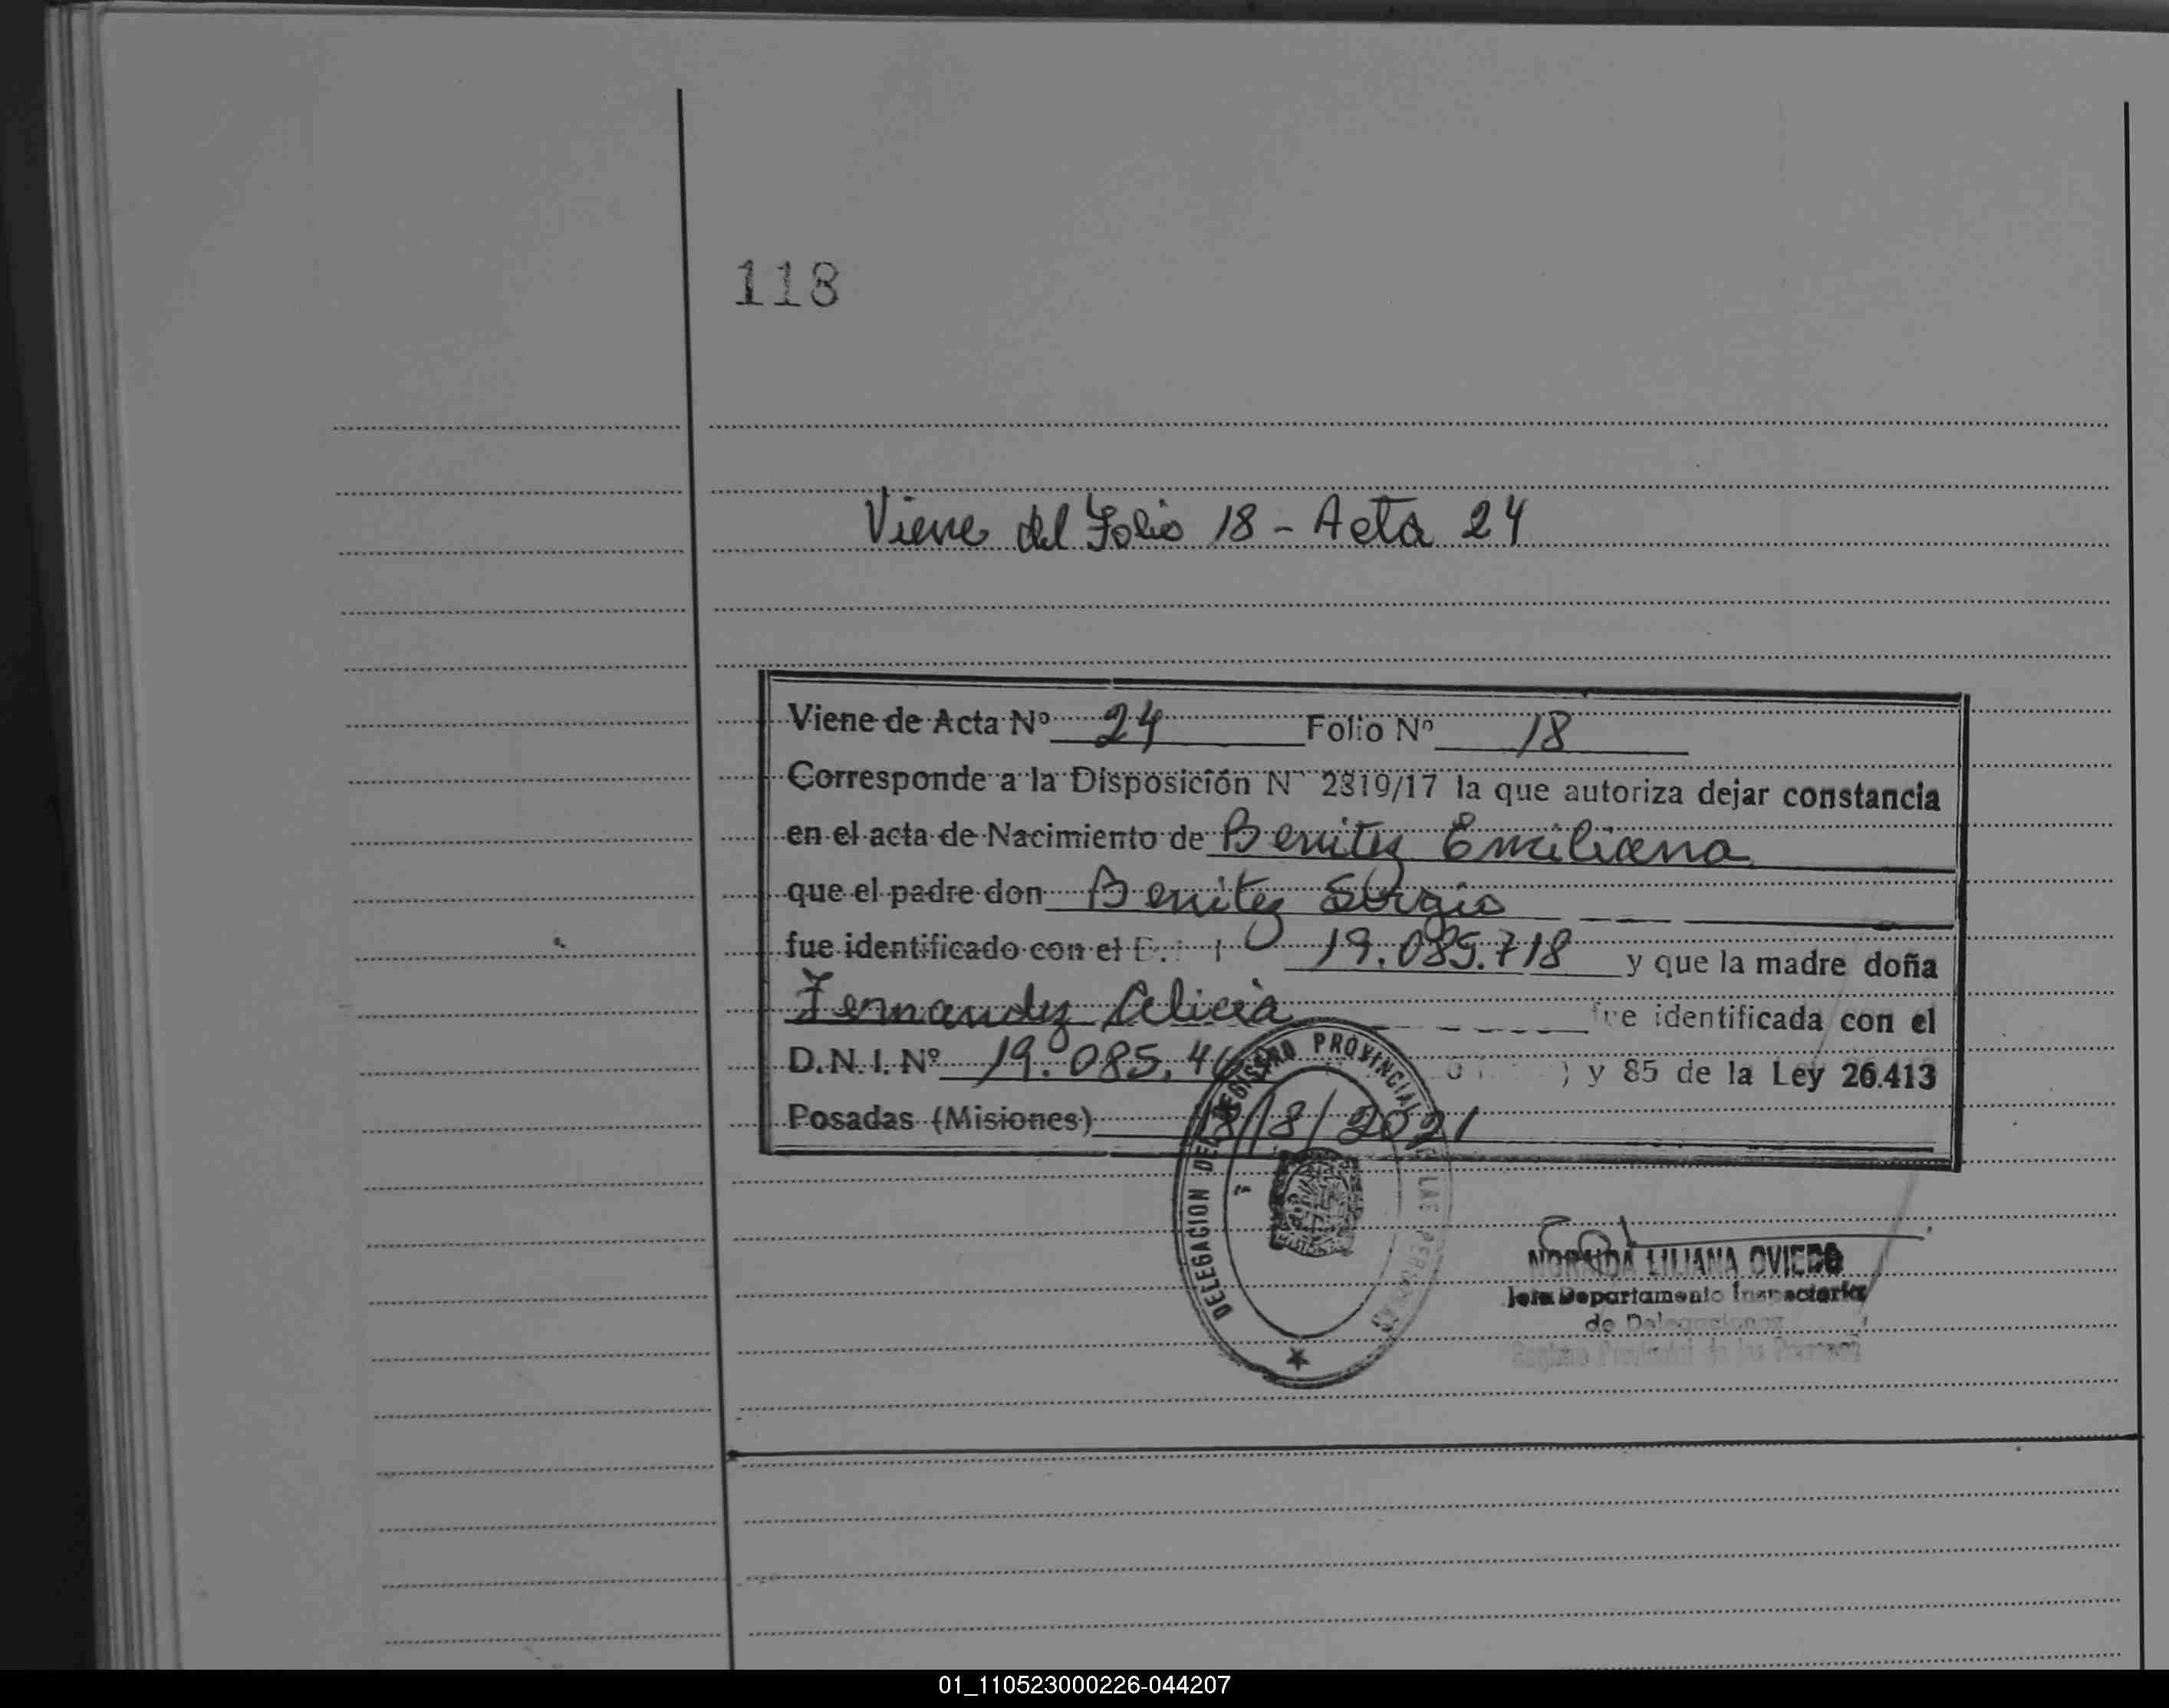 118
Viene del Folio 18 - Acta 24
Viene de Acta Nº 24 Folio Nº 18
Corresponde a la Disposición Nº 2319/17 la que autoriza dejar constancia
en el acta de Nacimiento de Benitez Emiliana
que el padre don Benitez Sergio
fue identificado con el 19.085.718 y que la madre doña
Fernandez Celicia fue identificada con el
D.N.I. Nº 19.085.4 y 85 de la Ley 26.413
Posadas (Misiones) /8/2021
DELEGACION DEL REGISTRO PROVINCIAL DE LAS PERSONAS
NORMIDA LILIANA OVIEDO
Jefa Departamento Inspectoria
de Delegaciones
Registro Provincial de las Personas
01_110523000226-044207